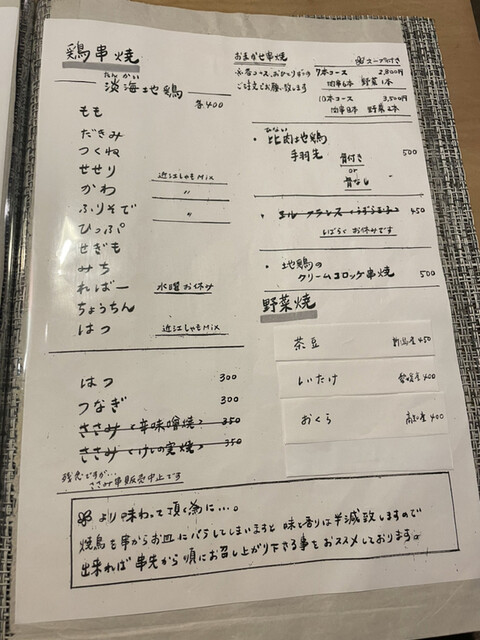 鶏串焼
たんかい
淡海地鶏
各400
もも
だきみ
つくね
せせり 近江しゃもMix
かわ 〃
ふりそで 〃
ひっぷ
せぎも
みち
ればー 水曜お休み
ちょうちん
はつ 近江しゃもMix
はつ 300
つなぎ 300
ささみ<辛味噌焼> 350
ささみ<けしの実焼> 350
残念ですが…
ささみ串販売中止です
おまかせ串焼 スープ付き
※各コース、おひとり様の
ご注文でお願い致します
7本コース 2,800円
肉串6本 野菜1本
10本コース 3,500円
肉串8本 野菜2本
・比内地鶏
ひない
手羽先 骨付き 500
or
骨なし
450
しばらくお休みです
・地鶏の
クリームコロッケ串焼 500
野菜焼
茶豆 新潟産 450
しいたけ 400
おくら 高知産 400
より味わって頂く為に…。
焼鳥を串からお皿にバラしてしまいますと味と香りは半減致しますので
出来れば串先から順にお召し上がり下さる事をおススメしております。